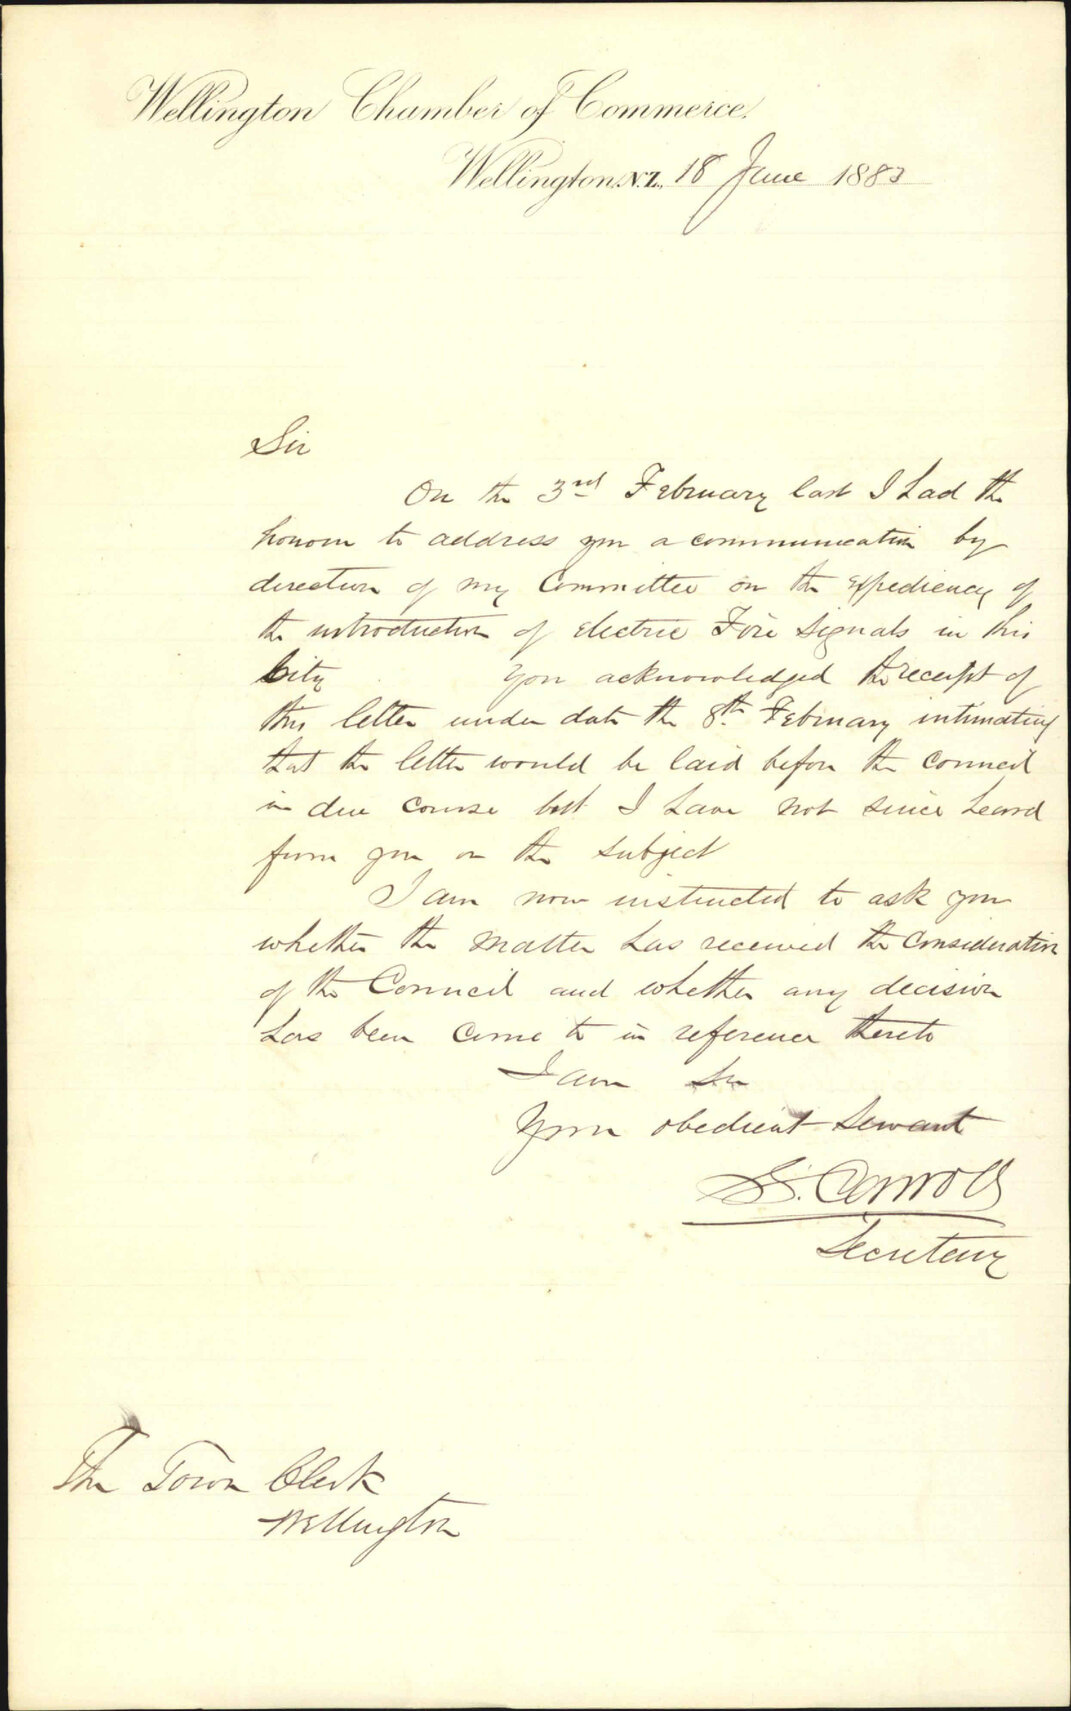 Wellington Chamber of Commerce.
Wellington, N.Z., 18 June 1883
Sir
On the 3rd February last I had the
honour to address you a communication by
direction of my Committee on the expediency of
the introduction of Electric Fire Signals in this
City You acknowledged the receipt of
this letter under date the 8th February intimating
that the letter would be laid before the Council
in due course but I have not since heard
from you on the subject
I am now instructed to ask you
whether the matter has received the consideration
of the Council and whether any decision
has been come to in reference thereto
I am Sir
Your obedient Servant
S. Carroll
Secretary
The Town Clerk
Wellington